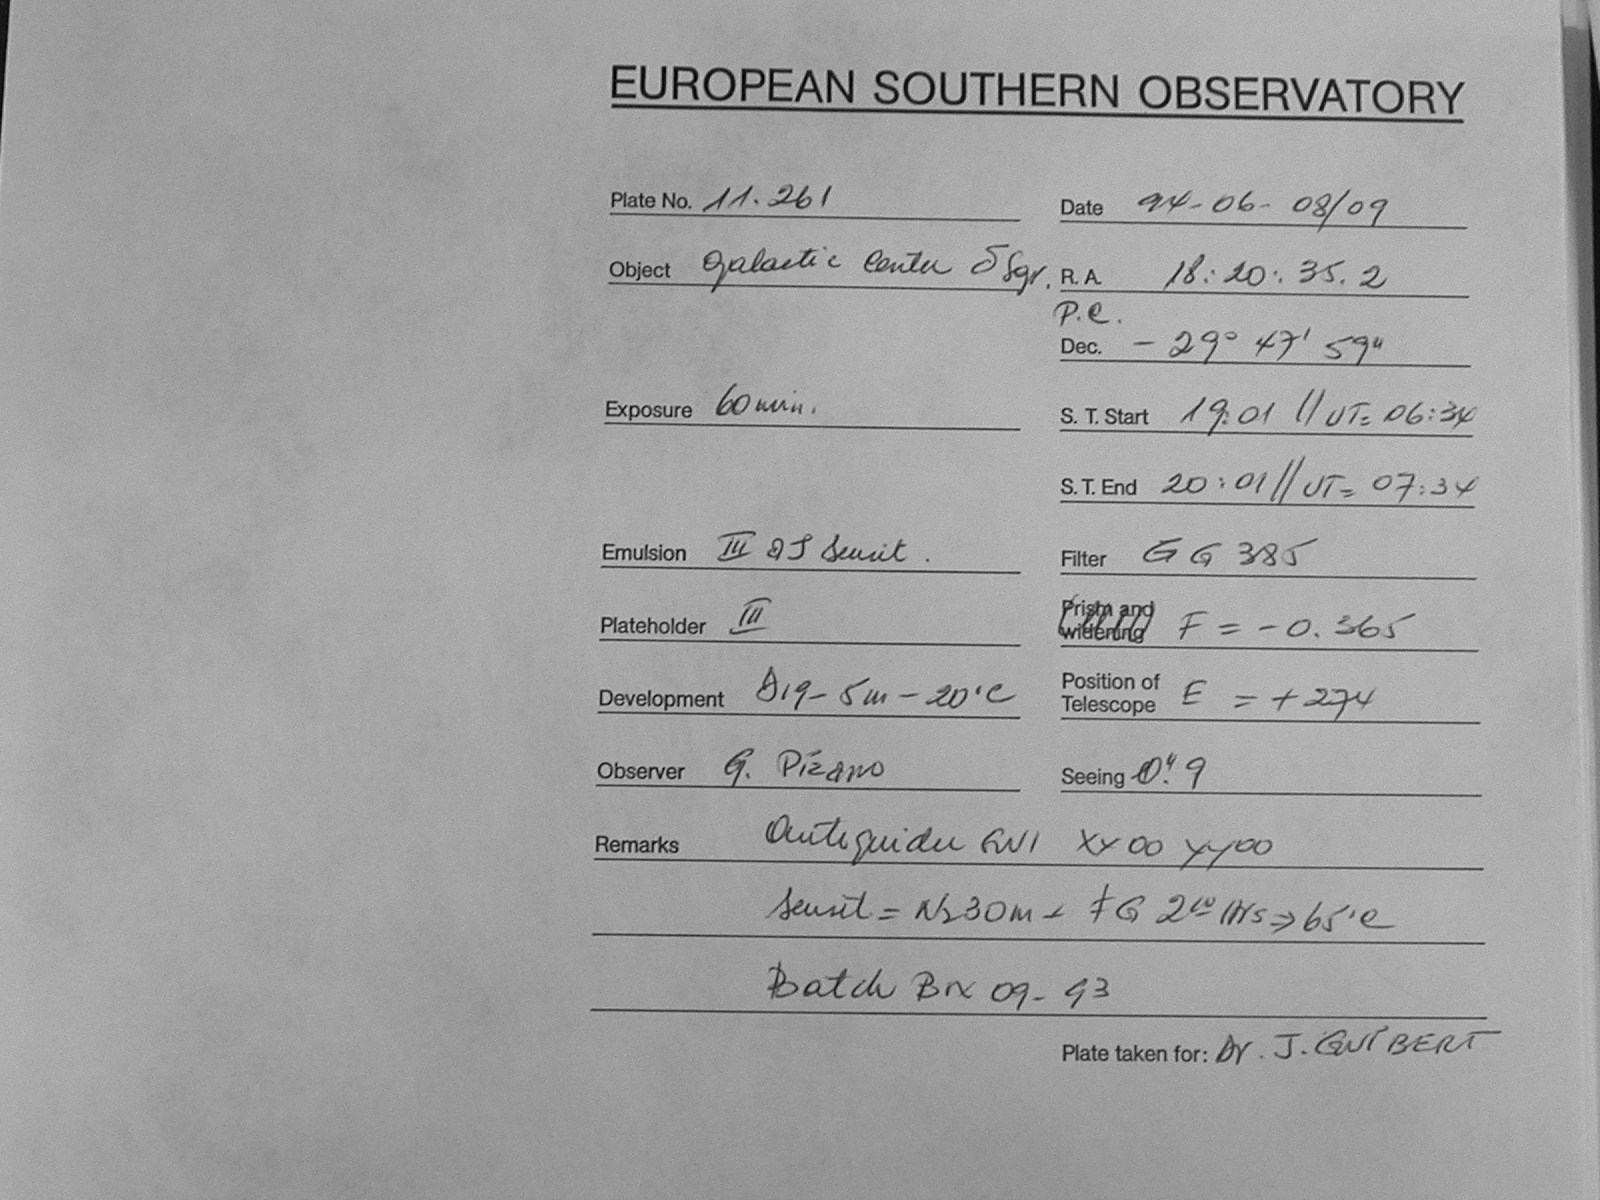 EUROPEAN SOUTHERN OBSERVATORY
Plate No. 11.261 Date 94-06-08/09
Object Galactic Center δ Sgr. R.A. 18:20:35.2
P.C.
Dec. -29° 47' 59"
Exposure 60 min. S.T. Start 19:01 // UT= 06:34
S.T. End 20:01 // UT= 07:34
Emulsion III aJ Sensit. Filter GG 385
Plateholder III Prism and widening F = -0.365
Development D19-5m-20°C Position of Telescope E = +274
Observer G. Pizarro Seeing 0".9
Remarks Autoguider XX00 YY00
Sensit = N2 30m + FG 65°C
Batch 09-93
Plate taken for: Dr. J. GUIBERT